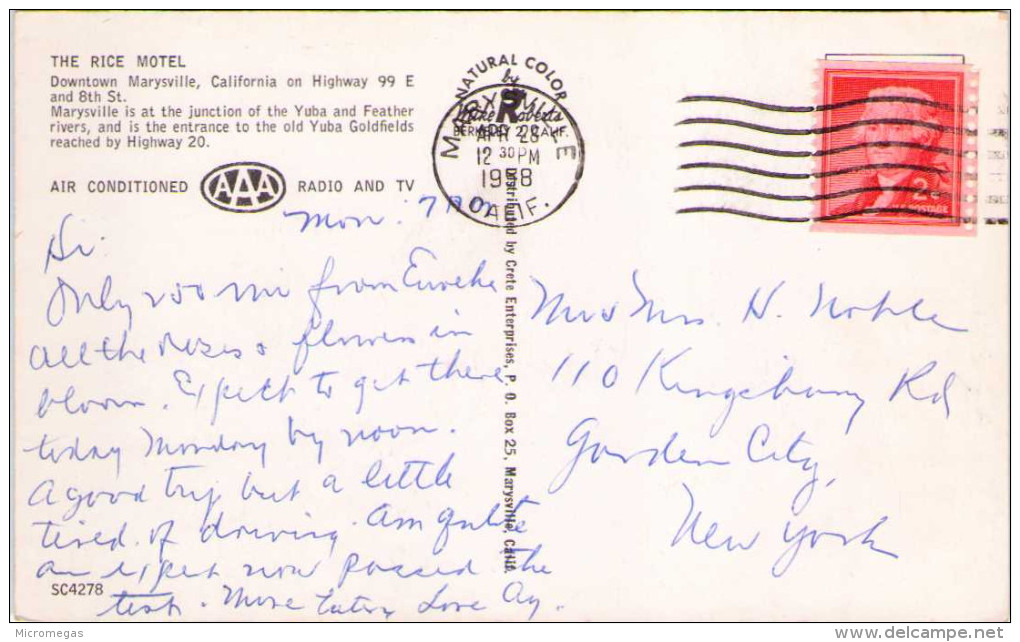 THE RICE MOTEL
Downtown Marysville, California on Highway 99 E
and 8th St.
Marysville is at the junction of the Yuba and Feather
rivers, and is the entrance to the old Yuba Goldfields
reached by Highway 20.
AIR CONDITIONED AAA RADIO AND TV
NATURAL COLOR
by
Mike Roberts
BERKELEY 2, CALIF.
MARYSVILLE
APR 28
12 30 PM
1958
CALIF.
2¢
POSTAGE
Distributed by Crete Enterprises, P. O. Box 25, Marysville, Calif.
Mon. 7
Hi.
Only 200 mi from Eureka
all the roses & flowers in
bloom. Expect to get there
today Monday by noon.
A good trip but a little
tired of driving. Am quite
an expert now passed the
test. More later, Love
Mr & Mrs. H. Noble
110 Kingsbury Rd
Garden City,
New York
SC4278
Micromegas
delcampe.net